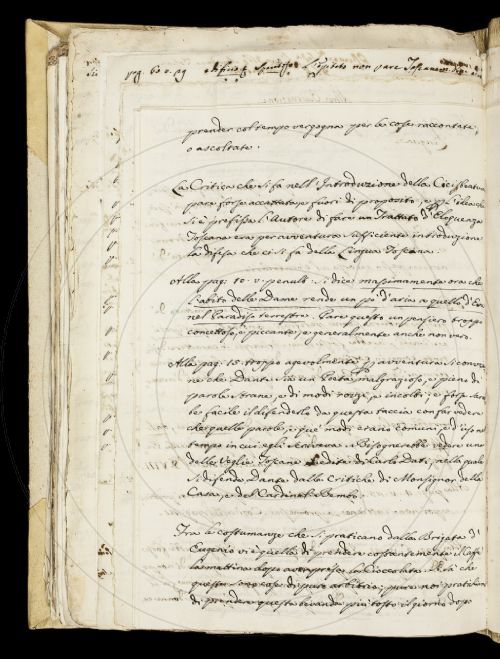 pag. 60 v. 29 L'epiteto non pare Toscano
prender col tempo vergogna per le cose raccontate,
o ascoltate.
La Critica che si fa nell'Introduzione della Cicceide
pare forse accattata, e fuori di proposito, e
si è prefissa l'Autore di fare un Trattato d'Eloquenza
Toscana era per avventura sufficiente introduzione
la difesa che ci si fa della Lingua Toscana.
Alla pag. 10. v. penult. si dice massimamente ora che
l'abito delle Dame rende un po' d'aria a quello d'Eva
nel Paradiso terrestre. Pare questo un pensiero tropp
concettoso, e piccante, e generalmente anche non vero.
Alla pag. 15. troppo agevolmente p avventura si convie
ne che Dante sia un Poeta malgrazioso, e pieno di
parole strane, e di modi rozzi, e incolti; e forse sareb
be facile il difenderlo da questa taccia con far vedere
che quelle parole, e que' modi erano comuni, e d'uso nel
tempo in cui egli scriveva. Bisognerebbe vedere una
delle Veglie Toscane inedite di Carlo Dati, nella quale
si difende Dante dalle Critiche di Monsignor della
Casa, e del Cardinal Bembo.
Tra le costumanze che si praticano dalla Brigata d'
Eugenio vi è quella di prendere costantemente il Caffè
la mattina dopo aver preso la Cioccolata.
queste sono cose di puro arbitrio; pure noi pratichiam
di prendere questa bevanda più tosto il giorno dopo